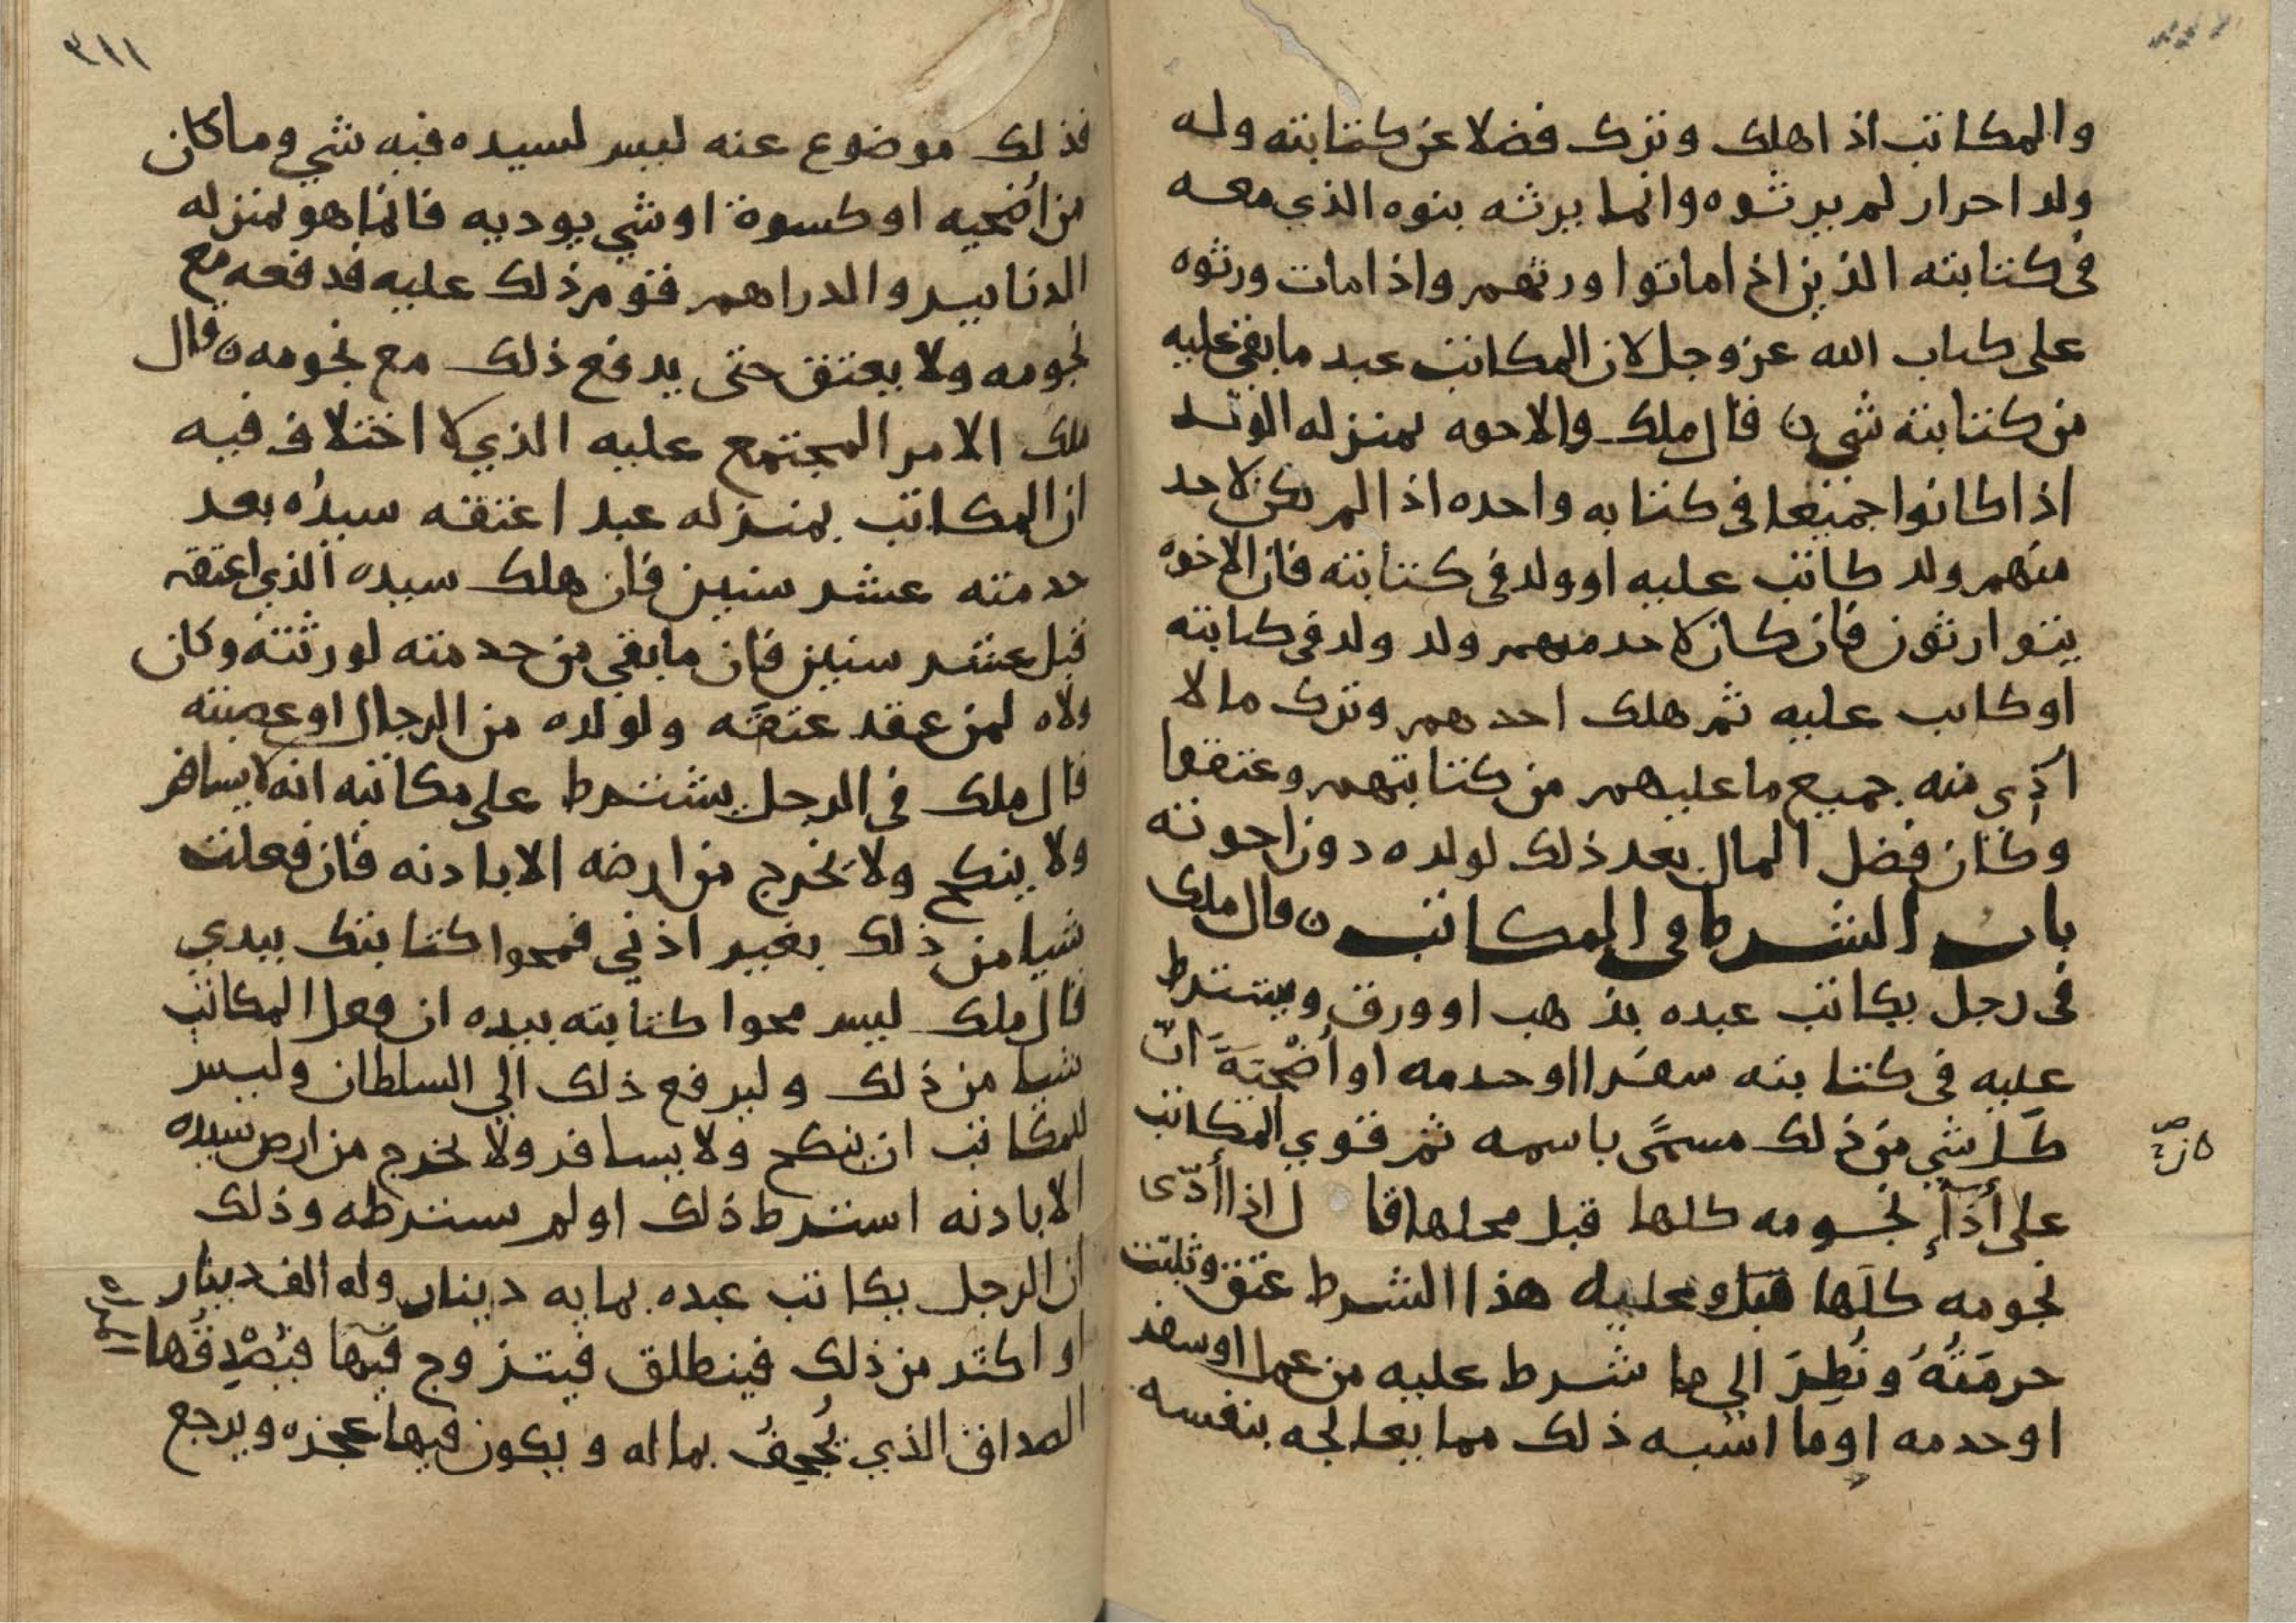 والمكاتب اذا هلك وترك فضلا عن كتابته وله
ولد احرار لم يرثوه وانما يرثه بنوه الذي معه
في كتابته الذين اذا ماتوا ورثهم واذا مات ورثوه
على كتاب الله عز وجل لان المكاتب عبد ما بقي عليه
من كتابته شي ن قال ملك والاخوه بمنزله الولد
اذا كانوا جميعا في كتابه واحده اذا لم يكن لاحد
منهم ولد كاتب عليه او ولد في كتابته فان الاخوه
يتوارثون فان كان لاحد منهم ولد ولد في كتابته
او كاتب عليه ثم هلك احدهم وترك مالا
أدي منه جميع ما عليهم من كتابتهم وعتقوا
وكان فضل المال بعد ذلك لولده دون اخوته
باب الشرط في المكاتب ن قال ملك
في رجل يكاتب عبده بذهب او ورق ويشترط
عليه في كتابته سفرا او خدمه او أضْحِيَةً انّ
كل شي من ذلك مسمًى باسمه ثم قوي المكاتب
على أدآءِ نجومه كلها قبل محلها قا ل اذا أدّى
نجومه كلها وعليه هذا الشرط عتق وثبتت
حرمَتُهُ ونُظِرَ الي ما شرط عليه من عمل او سفر
او خدمه او ما اشبه ذلك مما يعالجه بنفسه
٣١١
فذلك موضوع عنه ليس لسيده فيه شي وما كان
من أضحيه او كسوة او شي يوديه فانما هو بمنزله
الدنانير والدراهم فقوم ذلك عليه فدفعه مع
نجومه ولا يعتق حتى يدفع ذلك مع نجومه ن قال
ملك الامر المجتمع عليه الذي لا اختلاف فيه
ان المكاتب بمنزله عبد اعتقه سيدُه بعد
خدمته عشر سنين فان هلك سيده الذي اعتقه
قبل عشر سنين فان ما بقي من خدمته لورثته وكان
ولاه لمن عقد عتقه ولولده من الرجال او عصبته
قال ملك في الرجل يشترط على مكاتبه انه لا يسافر
ولا ينكح ولا يخرج من ارضه الا باذنه فان فعلت
شيا من ذلك بغير اذني فمحوا كتابتك بيدي
قال ملك ليس محوا كتابته بيده ان فعل المكاتب
شيا من ذلك وليرفع ذلك الي السلطان وليس
للمكاتب ان ينكح ولا يسافر ولا يخرج من ارض سيده
الا باذنه اشترط ذلك او لم يشترطه وذلك
ان الرجل يكاتب عبده بمايه دينار وله الف دينار
او اكثر من ذلك فينطلق فيتزوج فيها فيُصْدِقُها
الصداق الذي يُجحِفُ بماله ويكون فيها عجزه ويرجع